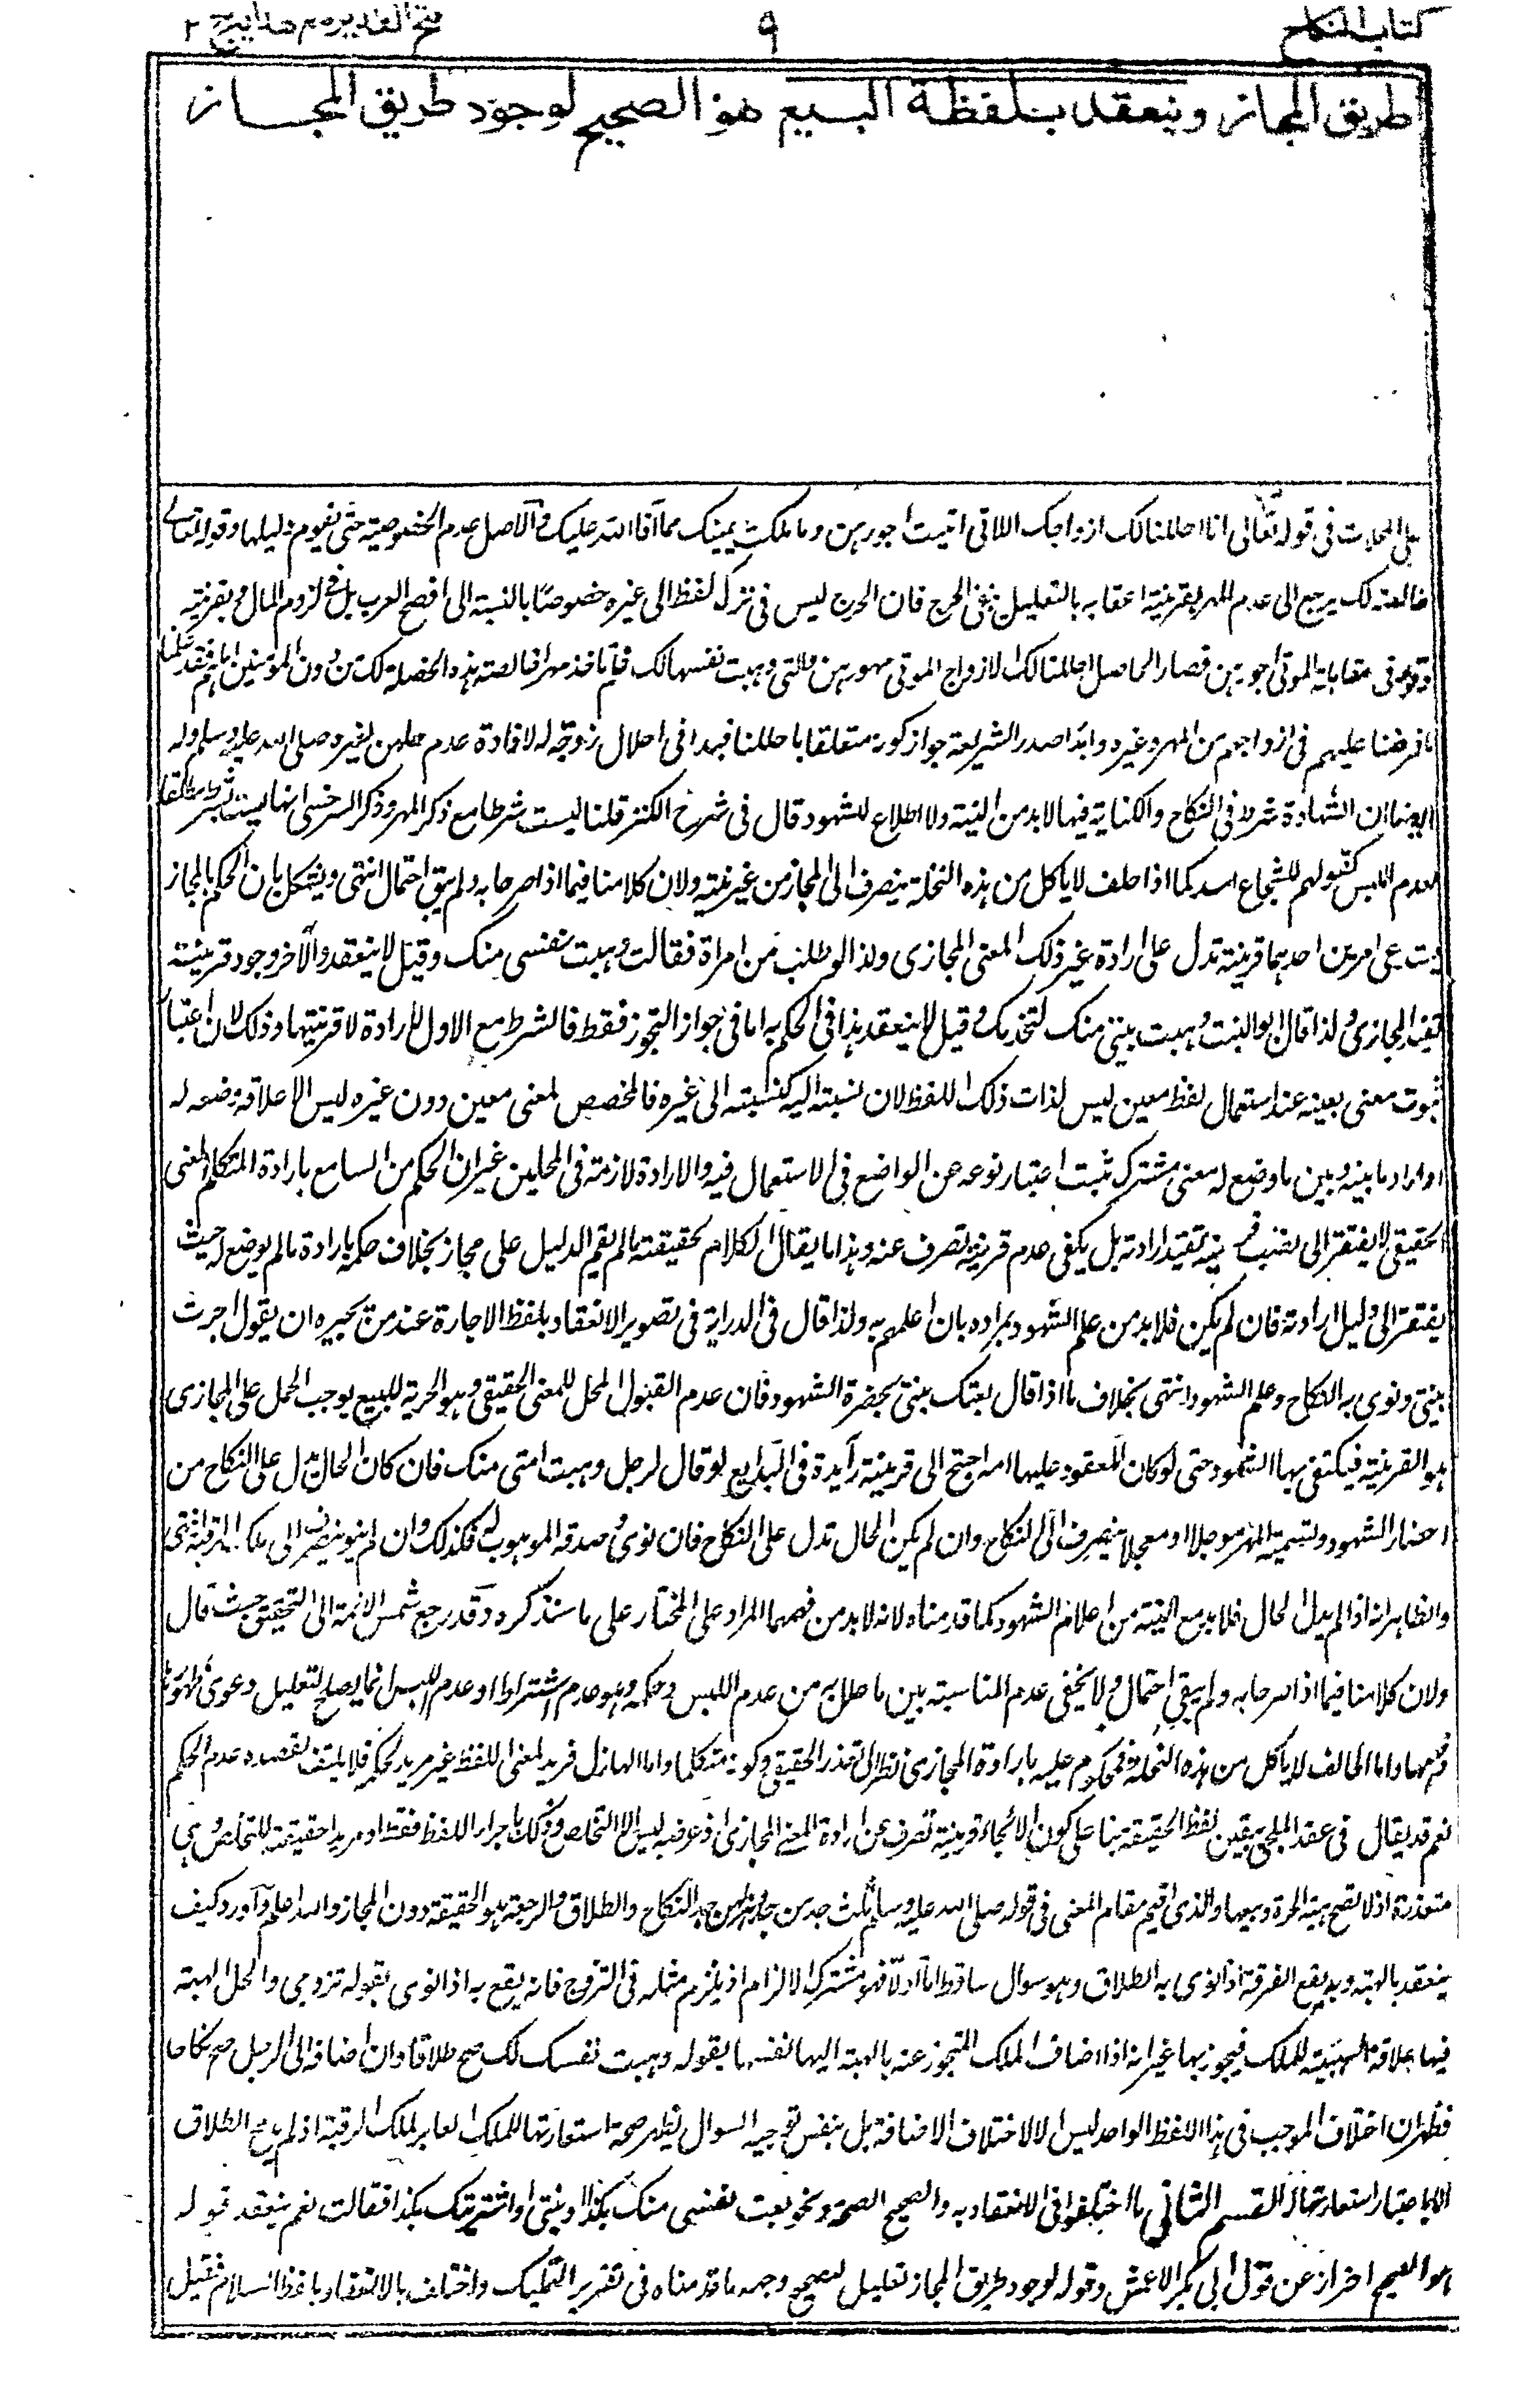 كتاب النكاح
٩
فتح القدير مع هدايه ج ٢
طريق المجاز وينعقد بلفظة البيع هو الصحيح لوجود طريق المجاز
على المحللات فى قوله تعالى انا احللنا لك ازواجك اللاتى اتيت اجورهن وما ملكت يمينك مما آفا الله عليك والاصل عدم الخصوصية حتى يقوم دليلها وقوله تعالى
خالصة لك يرجع الى عدم المهر بقرينة اعقابه بالتعليل بنفى الحرج فان الحرج ليس فى ترك لفظ الى غيره خصوصا بالنسبة الى افصح العرب بل فى لزوم المال وبقرينة
وقوعه فى مقابلة الموتى اجورهن فصار الحاصل احللنا لك الازواج الموتى مهورهن والتى وهبت نفسها لك فلم ياخذ مهرا خالصة هذه الخصلة لك من دون المؤمنين اما هم فقد علمنا
ما فرضنا عليهم فى ازواجهم من المهر وغيره وابدا صدر الشريعة جواز كونه متعلقا باحللنا قيدا فى احلال زوجه له لافادة عدم حلهن لغيره صلى الله عليه وسلم وله
ايضا ان الشهادة شرط فى النكاح والكناية فيها لابد من النية ولا اطلاع للشهود قال فى شرح الكنز قلنا ليست شرطا مع ذكر المهر وذكر السرخسى انها ليست بشرط مطلقا
لعدم اللبس كقولهم للشجاع اسد كما اذا حلف لا ياكل من هذه النخلة ينصرف الى المجاز من غير نية ولان كلامنا فيما اذا صرحا به ولم يبق احتمال انتهى ويشكل بان الحكم بالمجاز
يستدعى امرين احدهما قرينة تدل على ارادة غير ذلك المعنى المجازى ولذا لو طلب من امراة فقالت وهبت نفسى منك وقيل لا ينعقد والآخر وجود قرينة
تفيد المجازى ولذا قال ابو البنت وهبت بنتى منك لتخدمك وقيل لا ينعقد هذا فى الحكم به اما فى جواز التجوز فقط فالشرط مع الاول الارادة لا قرينتها وذلك لان اعتبار
ثبوت معنى بعينه عند استعمال لفظ معين ليس لذات ذلك اللفظ لان نسبته اليه كنسبته الى غيره فالمخصص لمعنى معين دون غيره ليس الا علاقة وضعه له
او ارادة ما بينه وبين ما وضع له معنى مشترك ثبت اعتبار نوعه عن الواضع فى الاستعمال فيه والارادة لازمة فى المحلين غير ان الحكم من السامع بارادة المتكلم المعنى
الحقيقى لا يفتقر الى نصب قرينة تفيد ارادته بل يكفى عدم قرينة تصرف عنه وهذا ما يقال الكلام لحقيقته ما لم يقم الدليل على مجازه بخلاف حكمه بارادة ما لم يوضع له حيث
يفتقر الى دليل ارادته فان لم يكن فلا بد من علم الشهود بمراده بان اعلمهم به ولذا قال فى الدراية فى تصوير الانعقاد بلفظ الاجارة عند من يجيزه ان يقول اجرت
بنتى ونوى به النكاح وعلم الشهود انتهى بخلاف ما اذا قال بعتك بنتى بحضرة الشهود فان عدم القبول المحل للمعنى الحقيقى وهو الحرية للبيع يوجب الحمل على المجازى
هو القرينة فيكتفى بها الشهود حتى لو كان المعقود عليها امة احتج الى قرينة زايدة فى البدايع لو قال لرجل وهبت امتى منك فان كان الحال يدل على النكاح من
احضار الشهود وتسمية المهر موجلا او معجلا ينصرف الى النكاح وان لم يكن الحال تدل على النكاح فان نوى وصدقه الموهوب له فكذلك وان لم ينو ينصرف الى ملك الرقبة انتهى
والظاهر انه اذا لم يدل الحال فلا بد مع النية من اعلام الشهود كما قدمناه لانه لابد من فهمهما المراد على المختار على ما سنذكره وقد رجع شمس الائمة الى التحقيق حيث قال
ولان كلامنا فيما اذا صرحا به ولم يبق احتمال ولا يخفى عدم المناسبة بين ما علل به من عدم اللبس وحكمه وهو عدم اشتراط او عدم اللبس انما يصلح لتعليل دعوى ظهور
فهمها واما الحالف لا ياكل من هذه النخلة فمحكوم عليه بارادة المجازى نظرا الى تعذر الحقيقى وكونه متكلما واما الهازل فمريد لمعنى اللفظ غير مريد لحكمه فلا يلتفت لقصده عدم الحكم
نعم قد يقال فى عقد الملجئ بتعين لفظ الحقيقة بناء على كون الالجاء قرينة تصرف عن ارادة المعنى المجازى اذ غرضه ليس الا التخلص وذلك باجراء اللفظ فقط او مريدا حقيقته للتخلص وهى
متعذرة اذ لا يصح هبة الحرة وبيعها والذى اقيم مقام المعنى فى قوله صلى الله عليه وسلم ثلث جدهن جد وهزلهن جد النكاح والطلاق والرجعة هو الحقيقة دون المجاز والله اعلم واورد كيف
ينعقد بالهبة وبه يقع الفرقة اذا نوى به الطلاق وهو سوال ساقط اما اولا فهو مشترك الالزام اذ يلزم مثله فى التزوج فانه يقع به اذا نوى بقوله تزوجى والحل الهبة
فيها علاقة السببية للملك فيجوز بها غير انه اذا اضاف الملك المتجوز عنه بالهبة اليها نفسها بقوله وهبت نفسك لك صح طلاقا وان اضافه الى الرجل صح نكاحا
فظهر ان اختلاف الموجب فى هذا اللفظ الواحد ليس الا لاختلاف الاضافة بل بنفس توجيه السوال يظهر صحة استعارتها للملك لعابر لملك الرقبة اذ لم يصح الطلاق
الا باعتبار استعارتها له القسم الثانى ما اختلفوا فى الانعقاد به والصحيح الصحة ونحو بعت نفسى منك بكذا او بنتى او اشتريتك بكذا فقالت نعم ينعقد قوله
هو الصحيح احتراز عن قول ابى بكر الاعمش وقوله لوجود طريق المجاز تعليل لصحيح وجهه ما قدمناه فى تقرير التمليك واختلف بالانعقاد بلفظ السلام فقيل